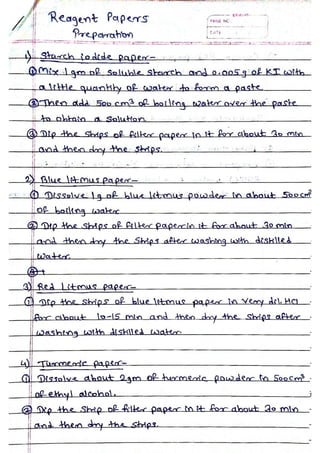 Reagent Papers
Preparation
PAGE NO.
DATE
1) Starch iodide paper-
① Mix 1 gm of soluble starch and 0.005 g of KI with
a little quantity of water to form a paste.
② Then add 500 cm³ of boiling water over the paste
to obtain a solution.
③ Dip the strips of filter paper in it for about 30 min
and then dry the strips.
2) Blue litmus paper-
① Dissolve 1g of blue litmus powder in about 500cm³
of boiling water
② Dip the strips of filter paper in it for about 30 min
and then dry the strips after washing with distilled
water.
3) Red litmus paper-
① Dip the strips of blue litmus paper in very dil. HCl
for about 10-15 min and then dry the strips after
washing with distilled water
4) Turmeric paper-
① Dissolve about 2gm of turmeric powder in 500cm³
of ethyl alcohol.
② Dip the strip of filter paper in it for about 30 min
and then dry the strips.